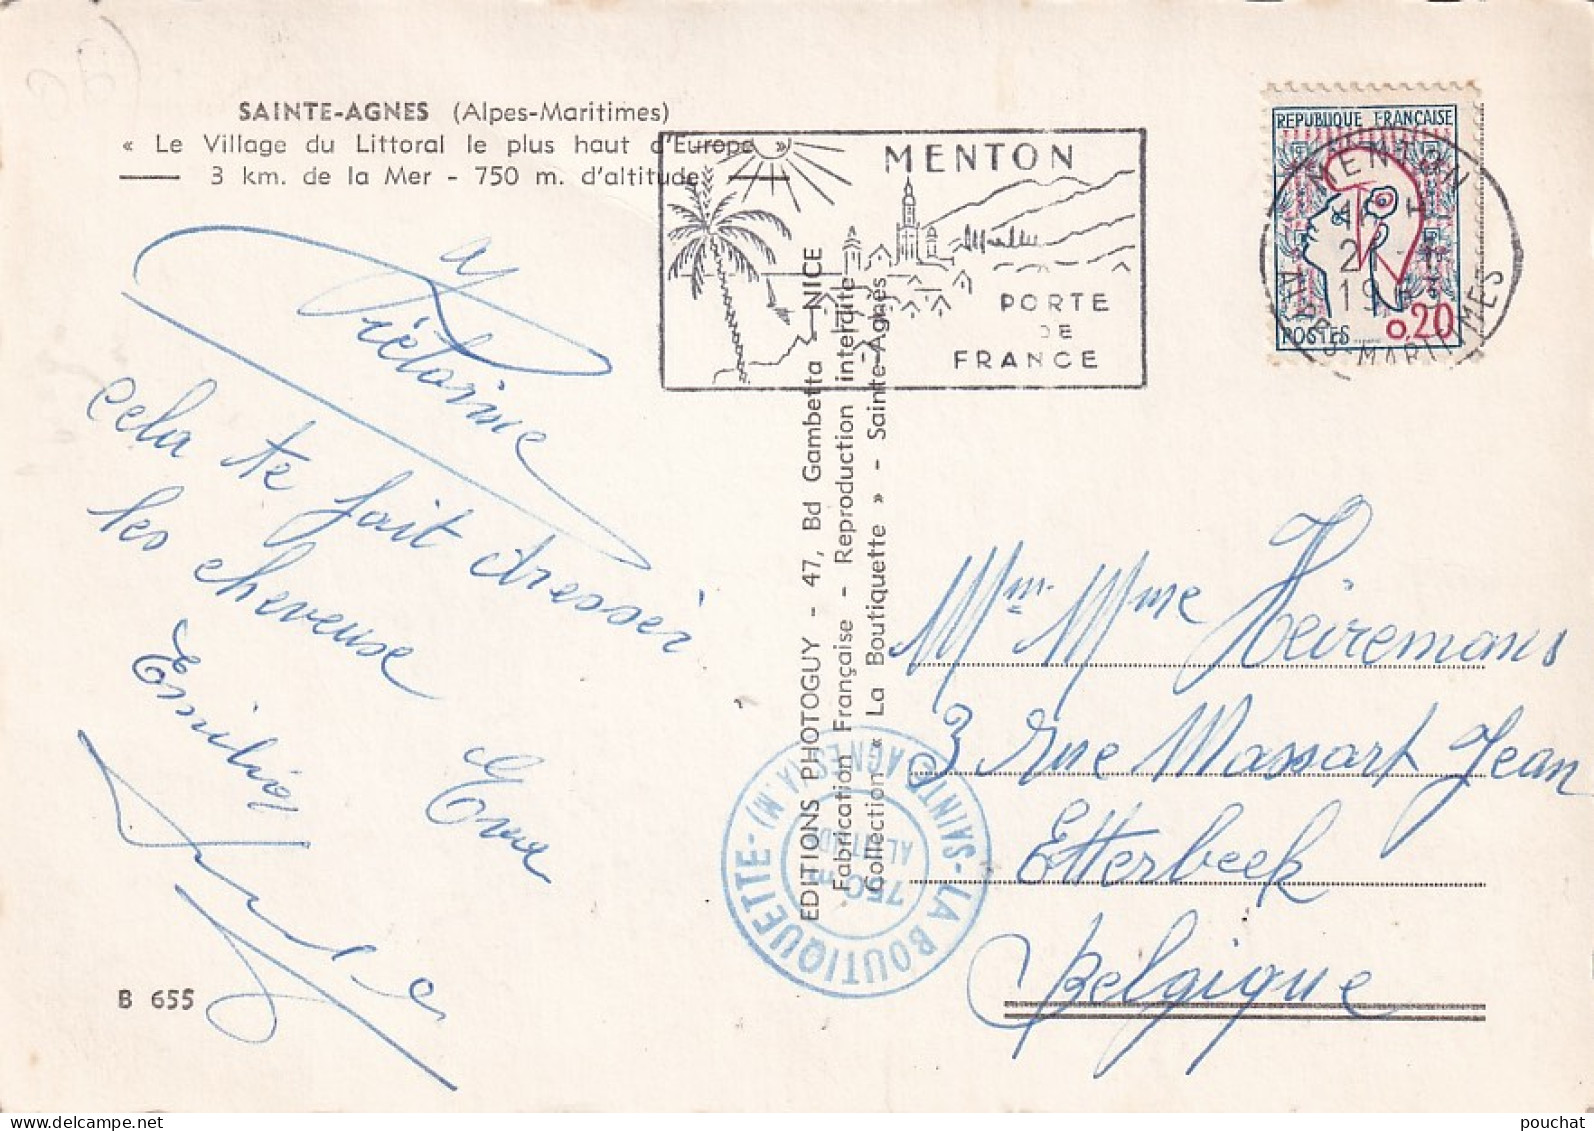 SAINTE-AGNES (Alpes-Maritimes)
« Le Village du Littoral le plus haut d'Europe »
3 km. de la Mer - 750 m. d'altitude
MENTON
PORTE
DE
FRANCE
REPUBLIQUE FRANÇAISE
POSTES
0,20
MENTON
21
19
ALPES-MARITIMES
a
cela te fait dresser
les cheveuse
Emilia
Eva
B 655
EDITIONS PHOTOGUY - 47, Bd Gambetta - NICE
Fabrication Française - Reproduction interdite
Collection « La Boutiquette » - Sainte-Agnès
LA BOUTIQUETTE - SAINTE AGNES (A.M)
750 m
ALTITUDE
Mr. Mme Heiremans
3 rue Massart Jean
Etterbeek
Belgique
pouchat